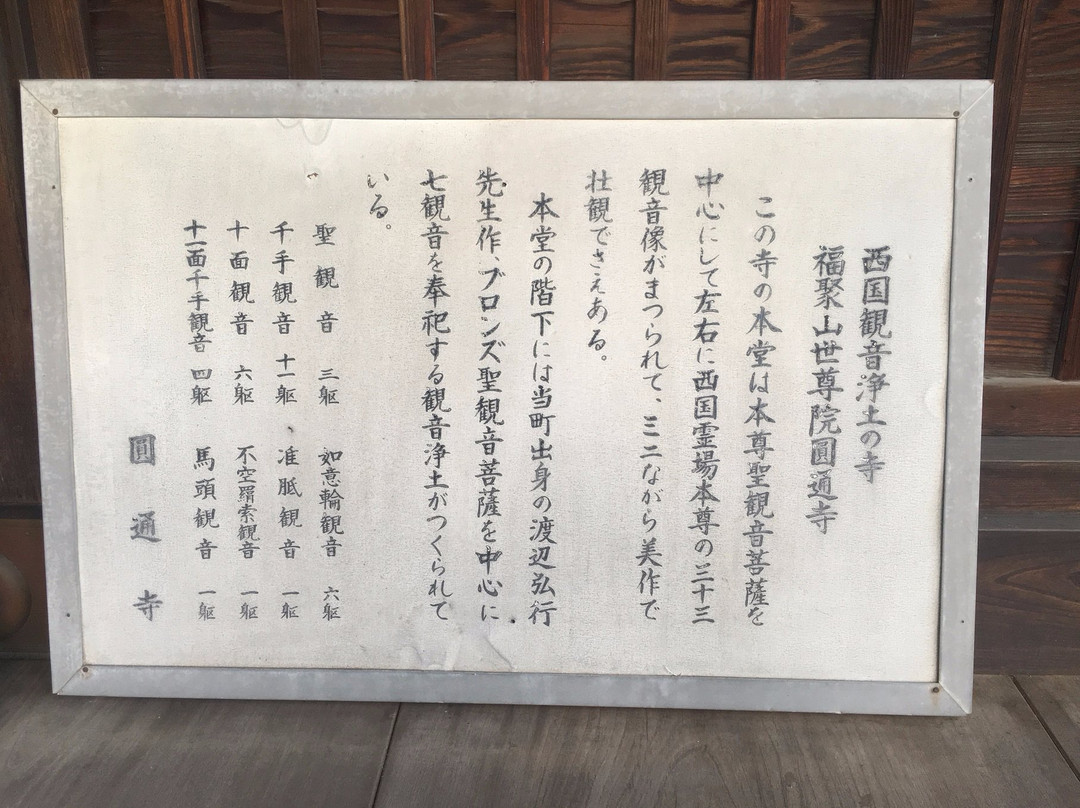 西国観音浄土の寺
福聚山世尊院圓通寺
この寺の本堂は本尊聖観音菩薩を
中心にして左右に西国霊場本尊の三十三
観音像がまつられて、ミニながら美作で
壮観でさえある。
本堂の階下には当町出身の渡辺弘行
先生作、ブロンズ聖観音菩薩を中心に
七観音を奉祀する観音浄土がつくられて
いる。
聖観音 三躯 如意輪観音 六躯
千手観音 十一躯、准胝観音 一躯
十面観音 六躯 不空羂索観音 一躯
十一面千手観音 四躯 馬頭観音 一躯
圓通寺